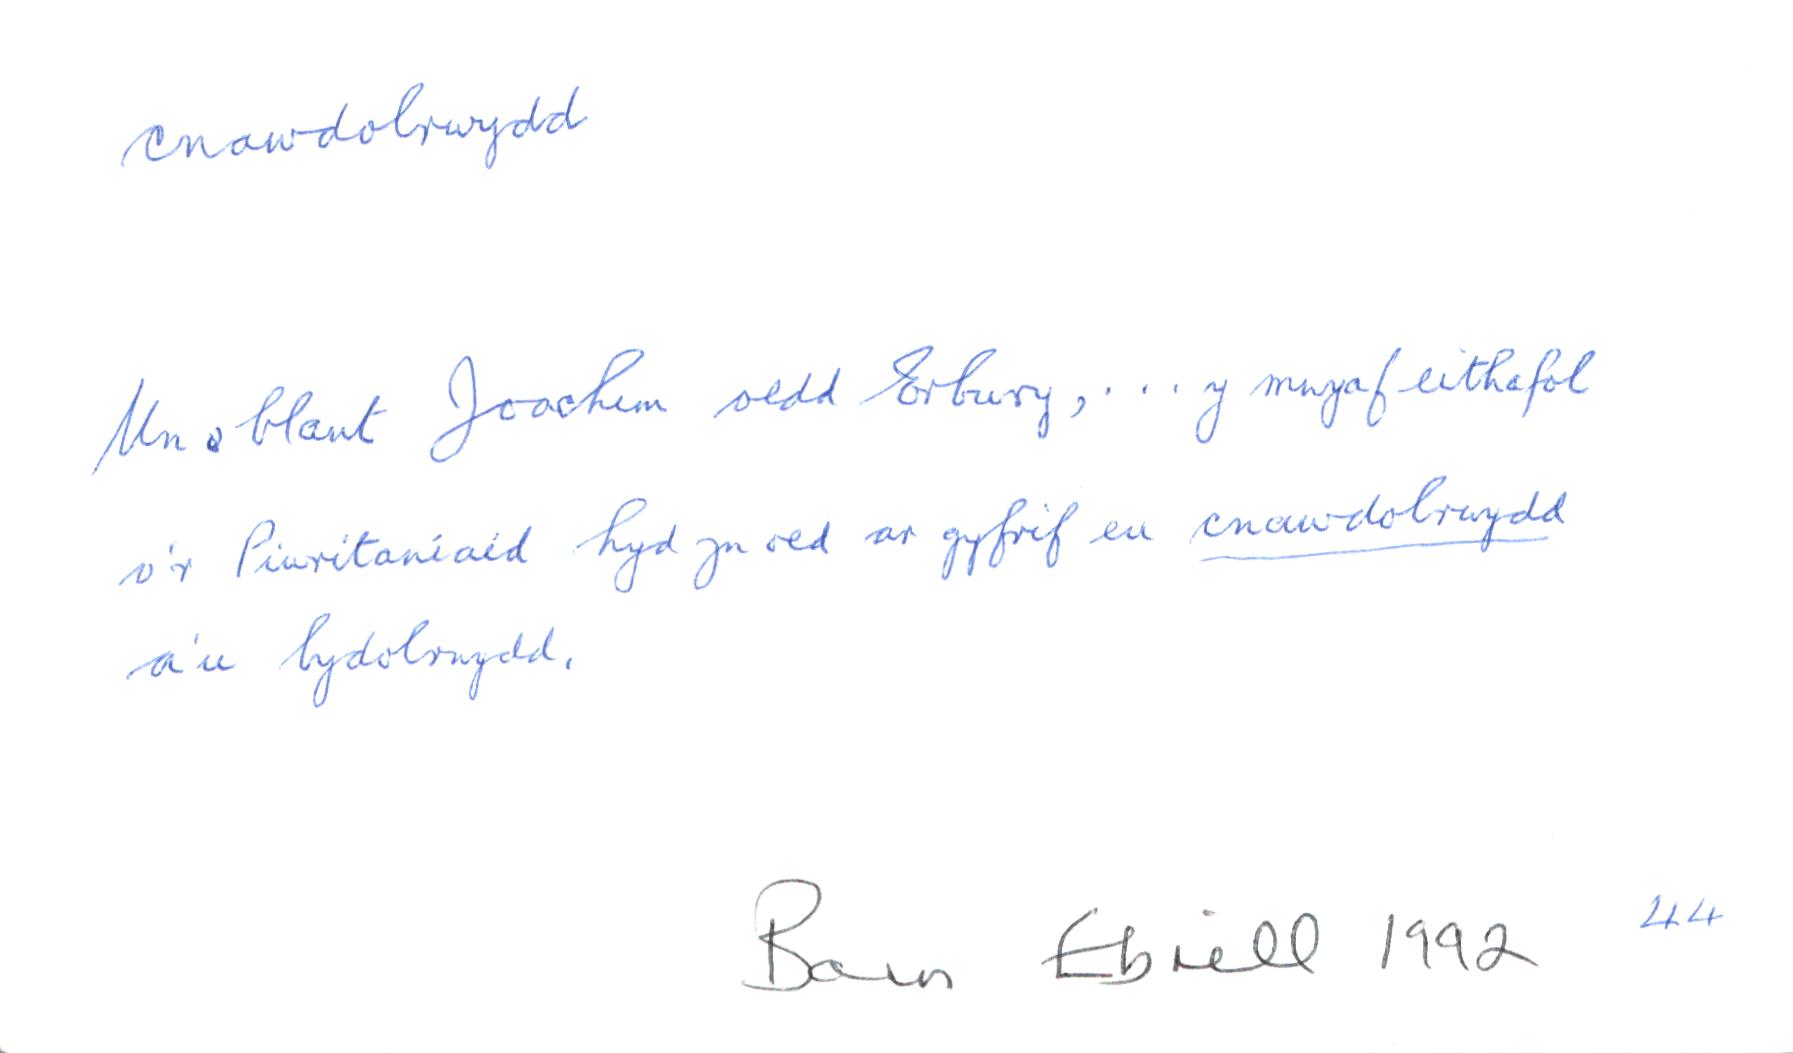 cnawdolrwydd
Un o blant Joachim oedd Erbury, ... y mwyaf eithafol
o'r Piwritaniaid hyd yn oed ar gyfrif eu cnawdolrwydd
a'u bydolrwydd.
Barn Ebrill 1992 44